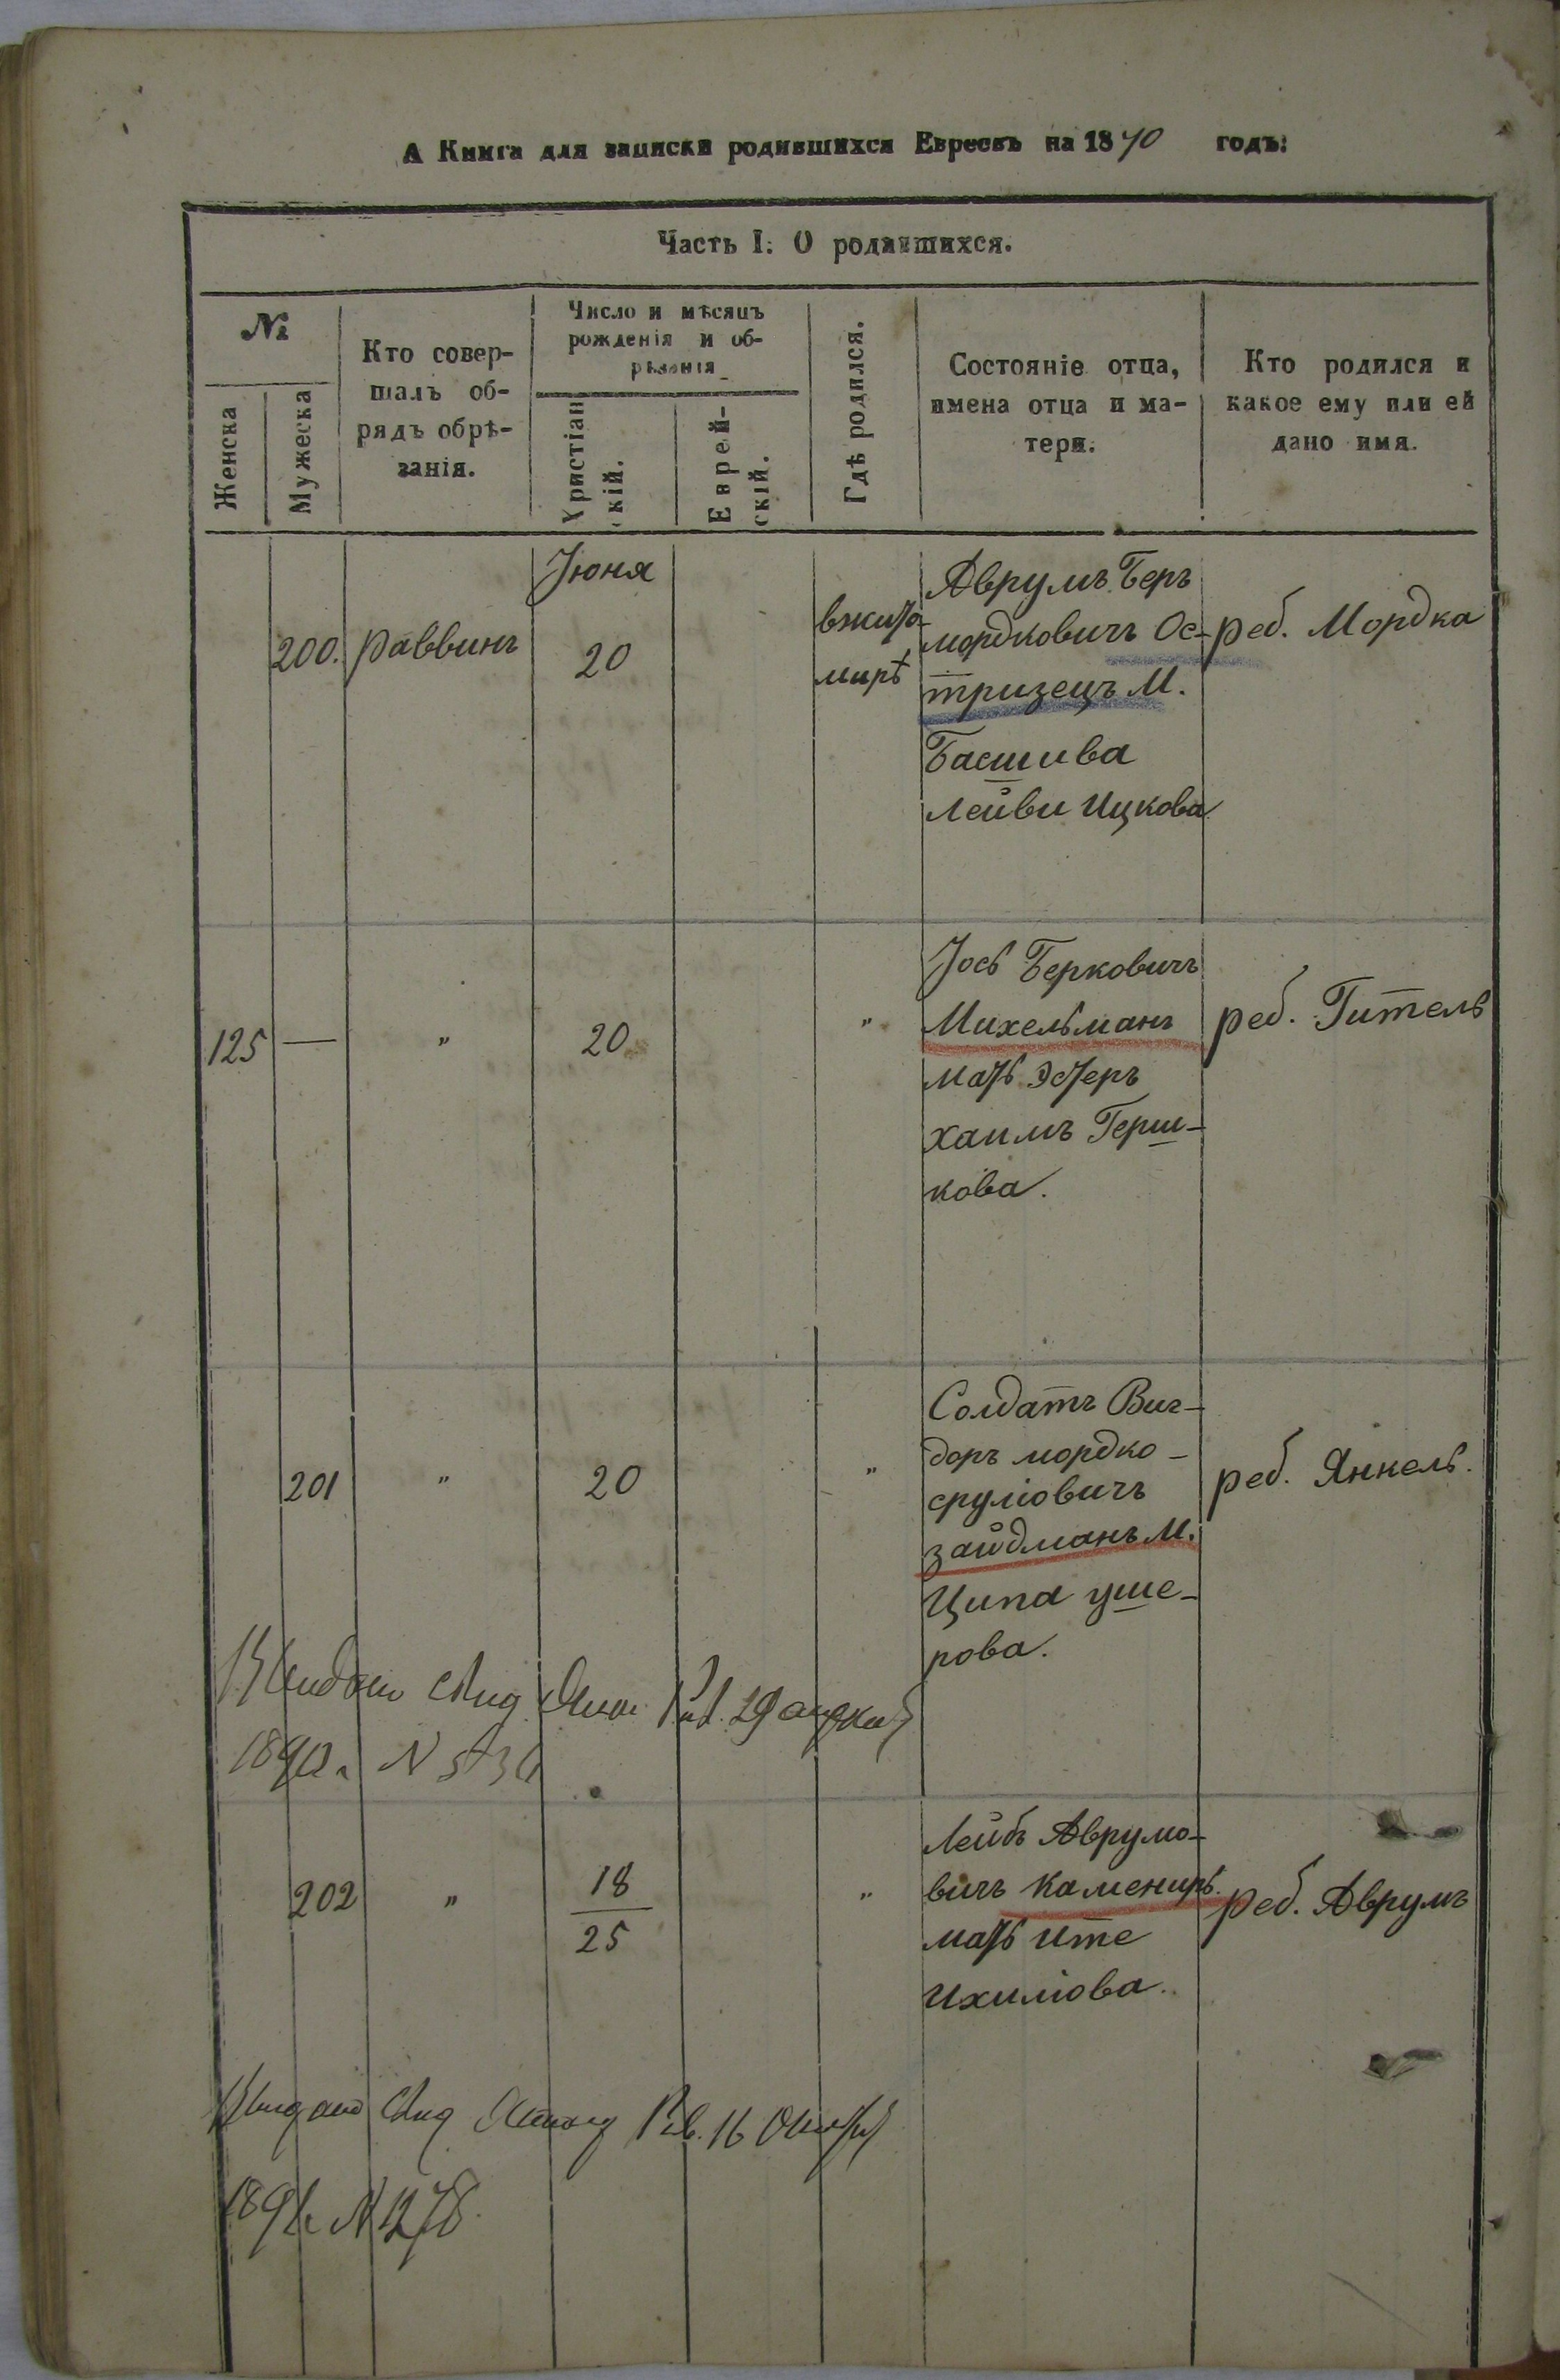 А Книга для записки родившихся Евреевъ на 1870 годъ:
Часть I: О родившихся.
№
Женска
Мужеска
Кто совер-
шалъ об-
рядъ обрѣ-
занія.
Число и мѣсяцъ
рожденія и об-
рѣзанія
Христіан
скій.
Еврей-
скій.
Гдѣ родился.
Состояніе отца,
имена отца и ма-
тери.
Кто родился и
какое ему или ей
дано имя.
Іюня
200. Раввинъ 20
вжито-
мирѣ
Аврумъ Беръ
мордковичъ Ос-
тризецъ М.
Басшива
Лейви Ицкова
реб. Мордка
125 — " 20 "
Іось Берковичъ
Михельманъ
мать Эстеръ
хаимъ Герш-
кова.
реб. Гитель
201 " 20 "
Солдатъ Виг-
доръ мордко-
сруліовичъ
зайдманъ М.
Ципа уше-
рова.
реб. Янкель.
1890 г. N
202 " 18 "
25
Лейбъ Аврумо-
вичъ Камениръ.
мать Ите
Ихиліова.
реб. Аврумъ
16
N 1278.